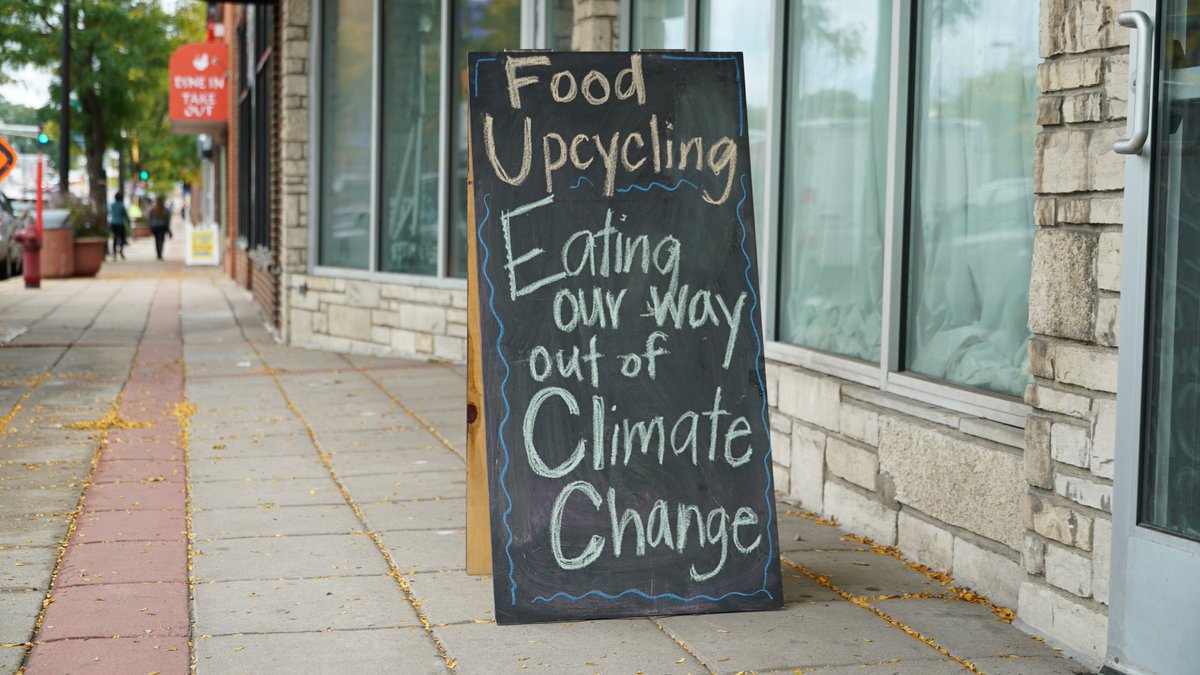 DINE IN
TAKE
OUT
Food
Upcycling
Eating
our way
out of
Climate
Change